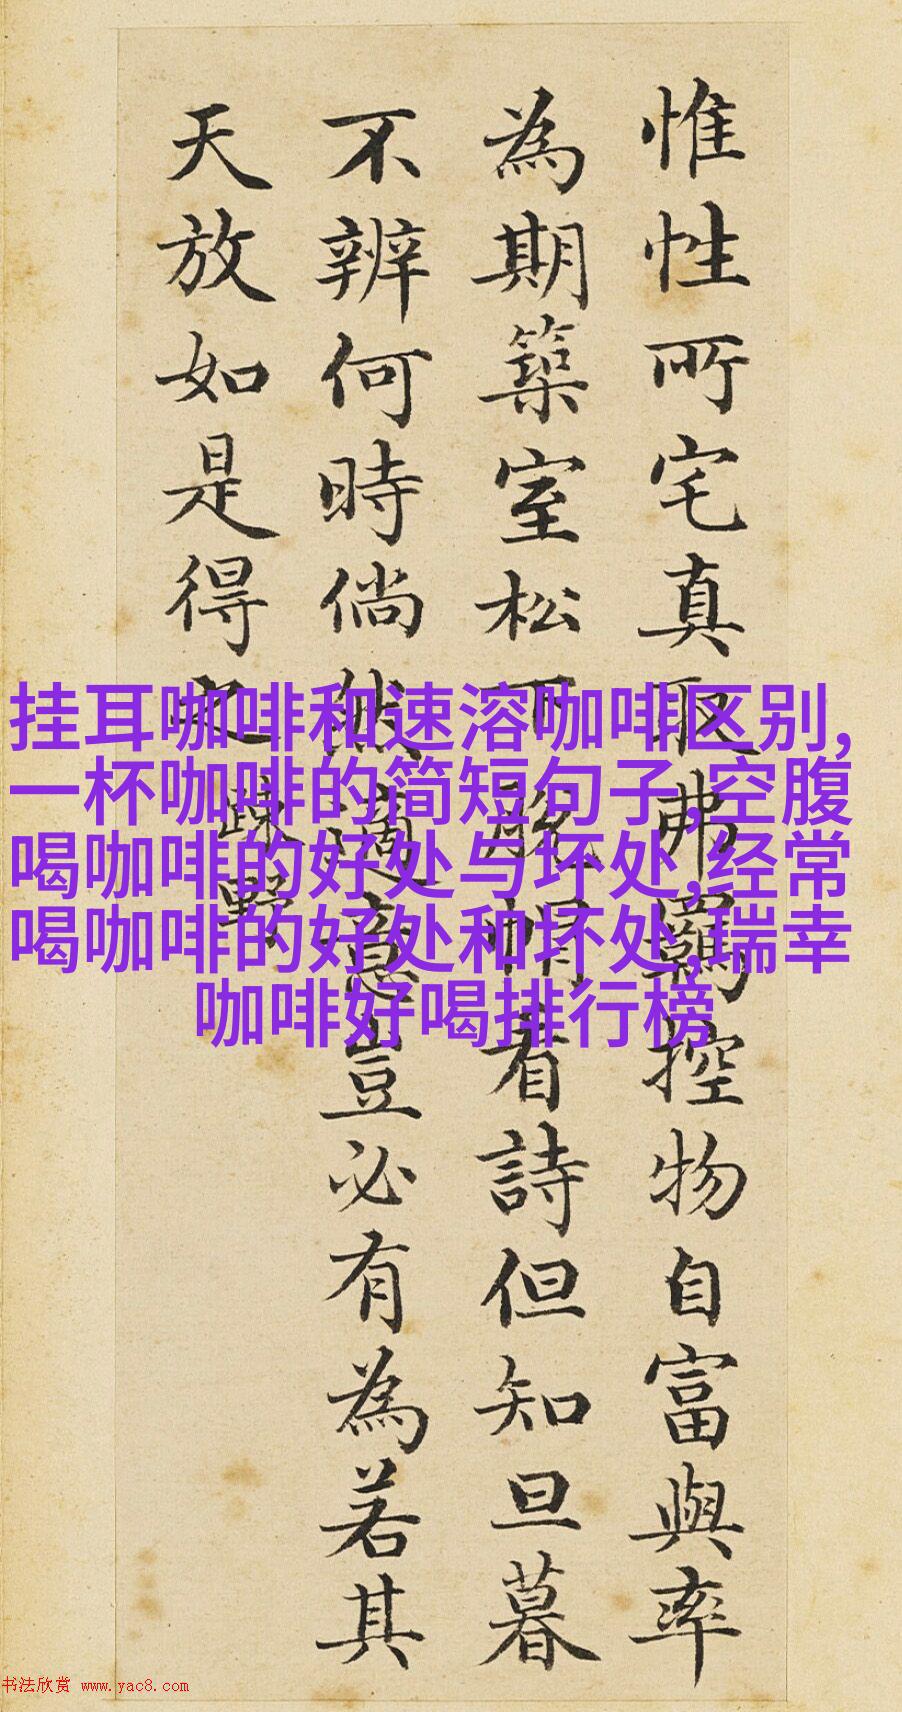 惟性所宅真取弗羈控物自富與率
為期築室松下脫帽看詩但知旦暮
不辨何時倘然適意豈必有為若其
天放如是得之
疎野
挂耳咖啡和速溶咖啡区别,
一杯咖啡的简短句子,空腹
喝咖啡的好处与坏处,经常
喝咖啡的好处和坏处,瑞幸
咖啡好喝排行榜
书法欣赏 www.yac8.com